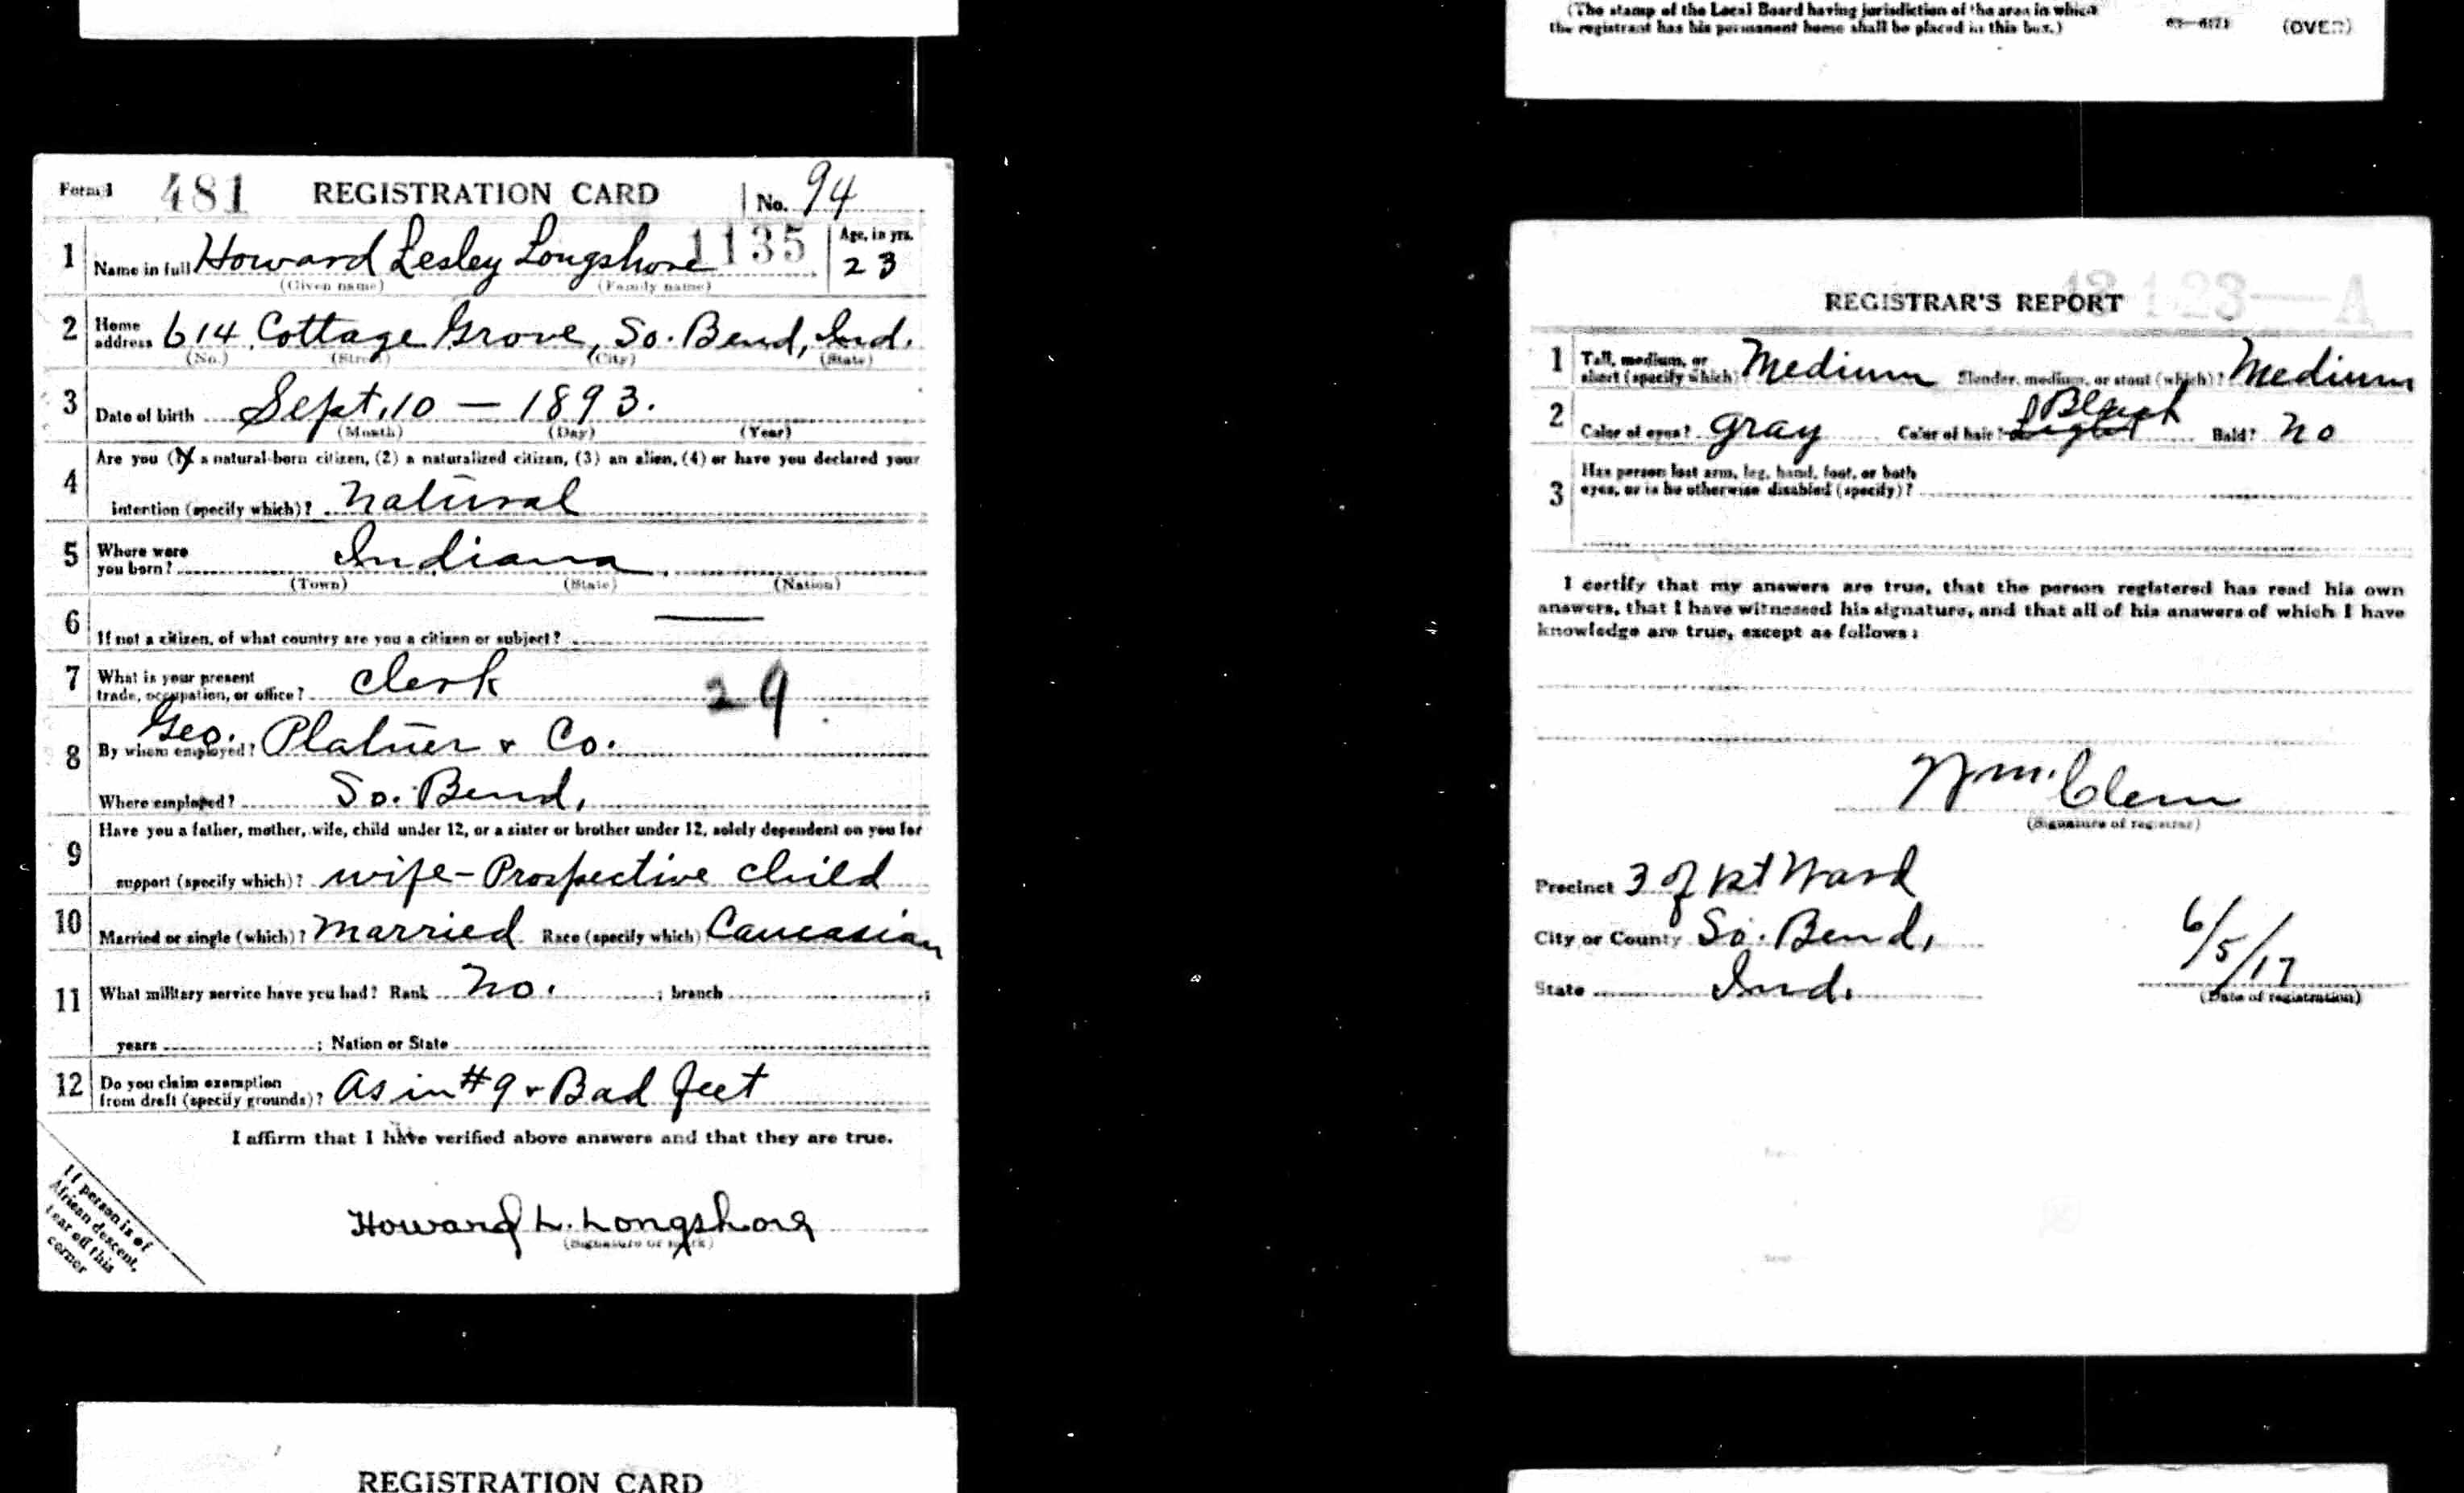 (The stamp of the Local Board having jurisdiction of the area in which
the registrant has his permanent home shall be placed in this box.)
(OVER)
Form 1 481 REGISTRATION CARD No. 94
1 Name in full Howard Lesley Longshore 1135 Age, in yrs. 23
(Given name) (Family name)
2 Home address 614 Cottage Grove, So. Bend, Ind.
(No.) (Street) (City) (State)
3 Date of birth Sept. 10 — 1893.
(Month) (Day) (Year)
4 Are you (1) a natural-born citizen, (2) a naturalized citizen, (3) an alien, (4) or have you declared your
intention (specify which)? Natural
5 Where were you born? Indiana
(Town) (State) (Nation)
6 If not a citizen, of what country are you a citizen or subject? —
7 What is your present trade, occupation, or office? Clerk 29
8 By whom employed? Geo. Platner & Co.
Where employed? So. Bend,
9 Have you a father, mother, wife, child under 12, or a sister or brother under 12, solely dependent on you for
support (specify which)? wife - Prospective child
10 Married or single (which)? Married Race (specify which) Caucasian
11 What military service have you had? Rank No. ; branch ;
years ; Nation or State
12 Do you claim exemption from draft (specify grounds)? As in #9 & Bad feet
I affirm that I have verified above answers and that they are true.
Howard L. Longshore
(Signature or mark)
If person is of
African descent,
tear off this
corner
REGISTRATION CARD
REGISTRAR'S REPORT
1 Tall, medium, or short (specify which)? Medium Slender, medium, or stout (which)? Medium
2 Color of eyes? Gray Color of hair? Light Black Bald? No
3 Has person lost arm, leg, hand, foot, or both
eyes, or is he otherwise disabled (specify)?
I certify that my answers are true, that the person registered has read his own
answers, that I have witnessed his signature, and that all of his answers of which I have
knowledge are true, except as follows:
Wm. Clem
(Signature of registrar)
Precinct 3 of 1st Ward
City or County So. Bend,
State Ind.
6/5/17
(Date of registration)